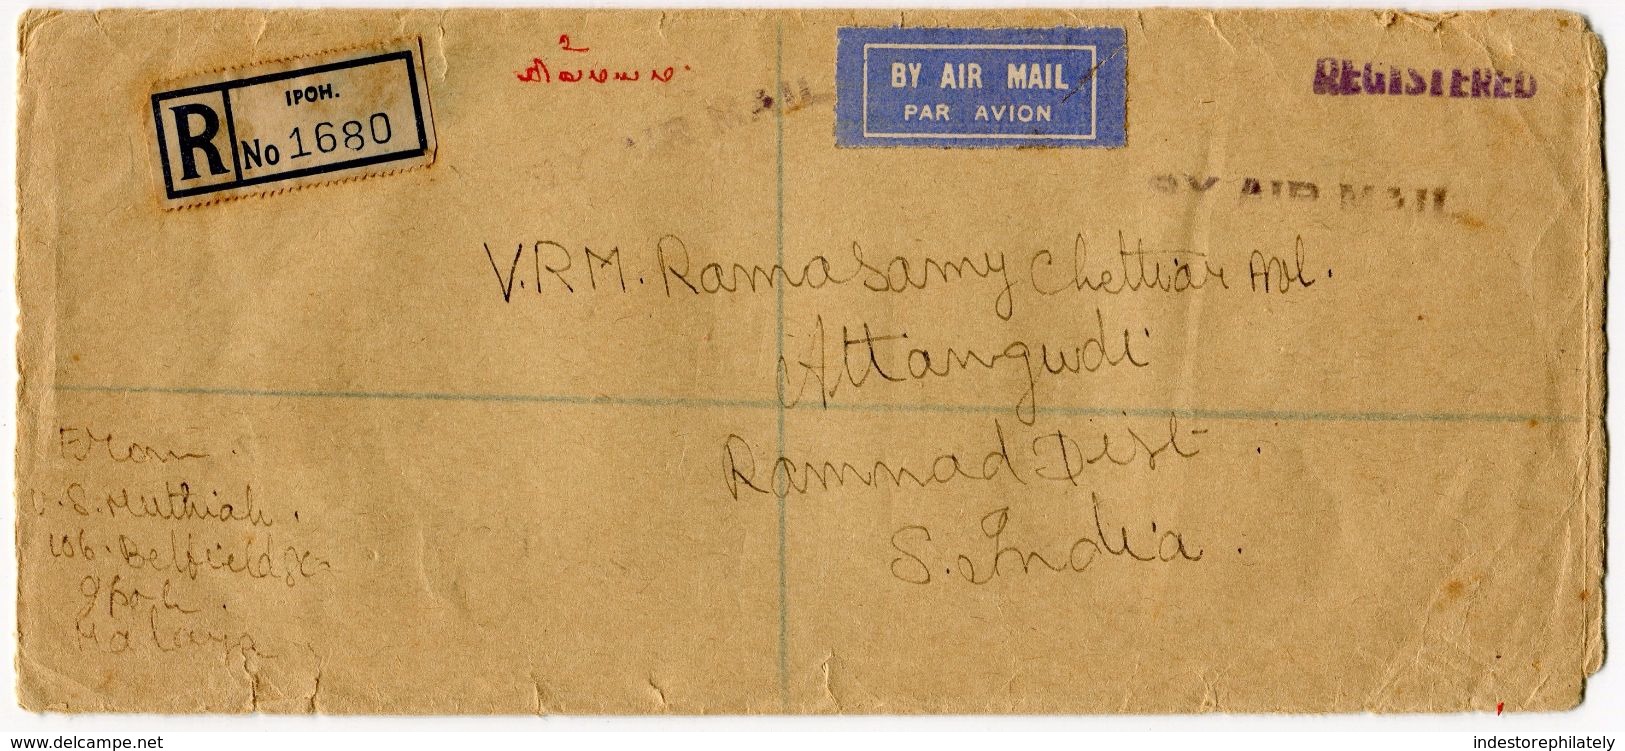 R
IPOH.
No 1680
BY AIR MAIL
PAR AVION
REGISTERED
AIR MAIL
BY AIR MAIL
V.R.M. Ramasamy Chettiar Avl.
Attangudi
Ramnad Dist.
S. India.
From.
V.S. Muthiah.
106. Belfield St
Ipoh.
Malaya
www.delcampe.net
indestorephilately